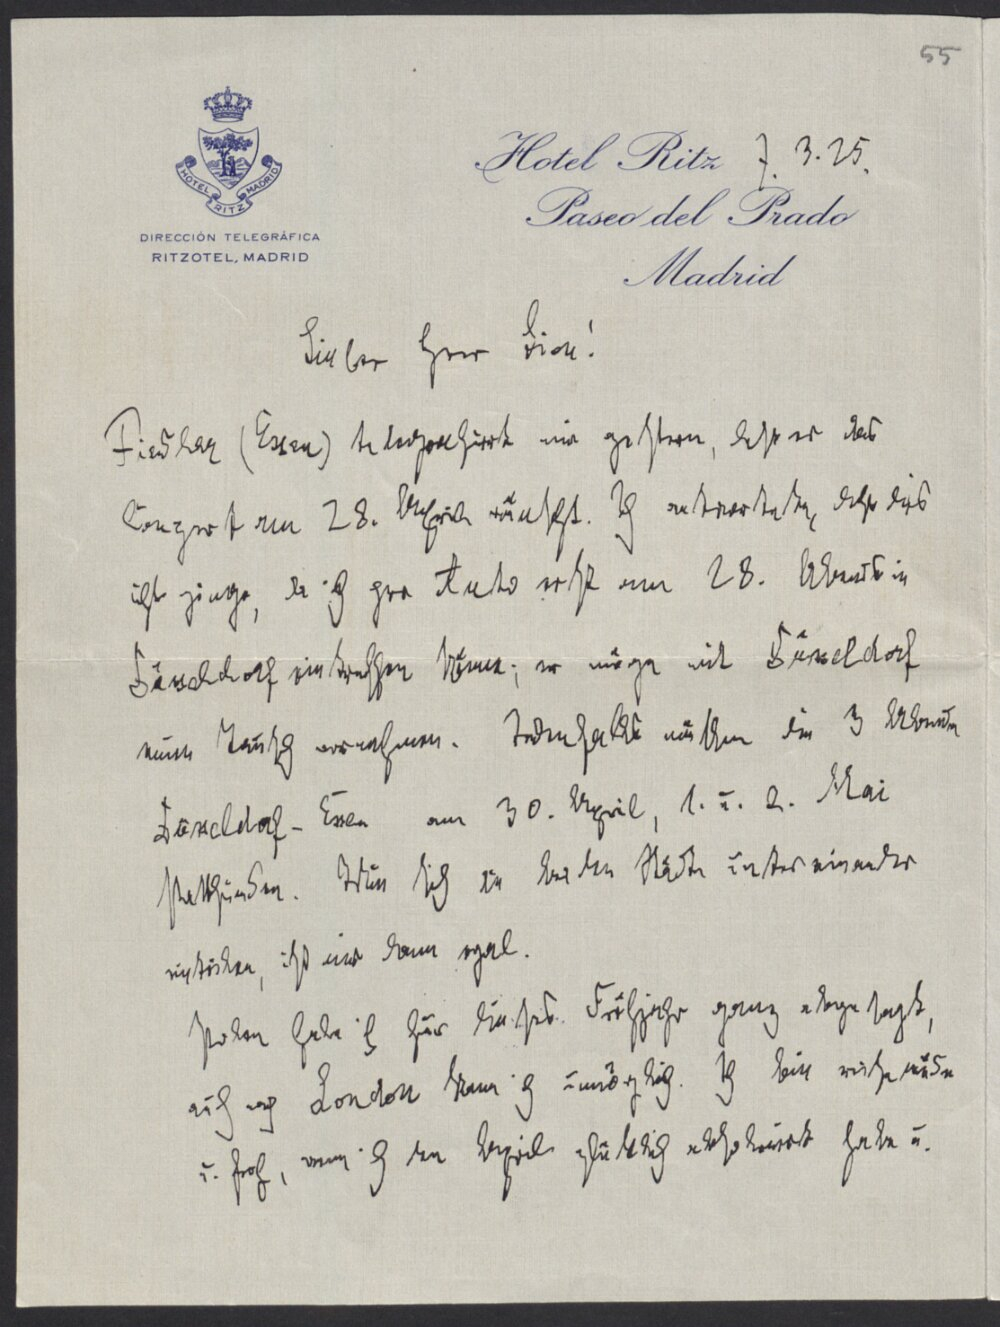 55
Hotel Ritz 7. 3. 25.
Paseo del Prado
Madrid
HOTEL RITZ MADRID
DIRECCIÓN TELEGRÁFICA
RITZOTEL, MADRID
Lieber Herr Diou!
Fiedler (Essen) telegraphiert mir gestern, daß er das
Conzert am 28. April wünscht. Ich antwortete, daß dies
nicht ginge, da ich per Auto erst am 28. Abends in
Düsseldorf eintreffen könne; er möge mit Düsseldorf
einen Tausch vornehmen. Jedenfalls müßten die 3 Abende
Düsseldorf – Essen am 30. April, 1. u. 2. Mai
stattfinden. Wie sich die beiden Städte untereinander
einigen, ist mir dann egal.
Polen habe ich für dieses Frühjahr ganz abgesagt,
auch nach London kann ich unmöglich. Ich bin recht müde
u. froh, wenn ich den April glücklich absolviert habe u.